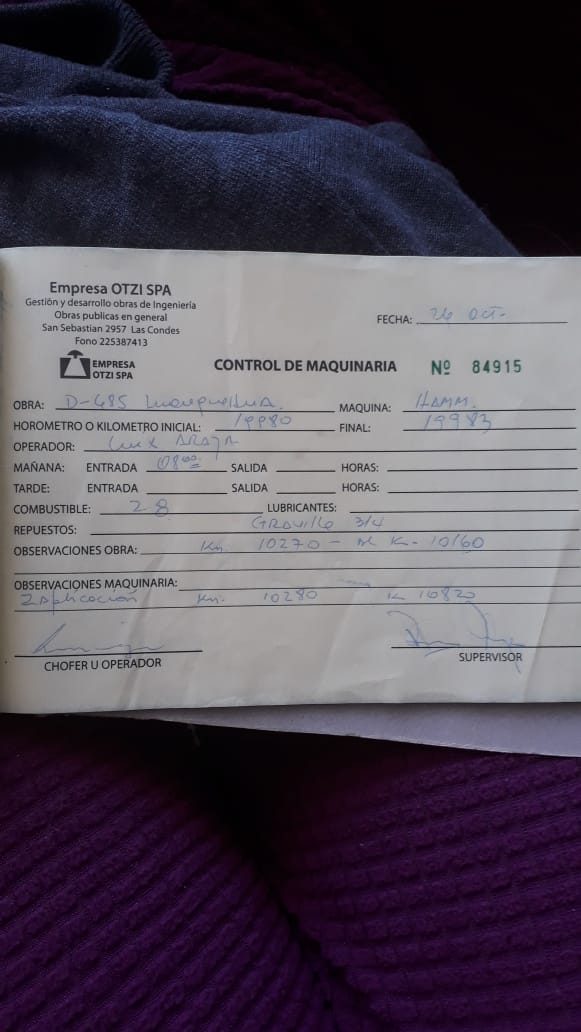 Empresa OTZI SPA
Gestión y desarrollo obras de Ingeniería
Obras publicas en general
San Sebastian 2957 Las Condes
Fono 225387413
FECHA: 26 OCT-
EMPRESA
OTZI SPA
CONTROL DE MAQUINARIA Nº 84915
OBRA: D-485 MAQUINA: HAMM.
HOROMETRO O KILOMETRO INICIAL: 19980 FINAL: 19983
OPERADOR: ARAYA
MAÑANA: ENTRADA 08 00 SALIDA HORAS:
TARDE: ENTRADA SALIDA HORAS:
COMBUSTIBLE: 28 LUBRICANTES:
REPUESTOS: GRAVILLA 3/4
OBSERVACIONES OBRA: Km. 10270 - AL K- 10160
OBSERVACIONES MAQUINARIA:
2 Aplicación Km. 10280 K 10820
CHOFER U OPERADOR
SUPERVISOR